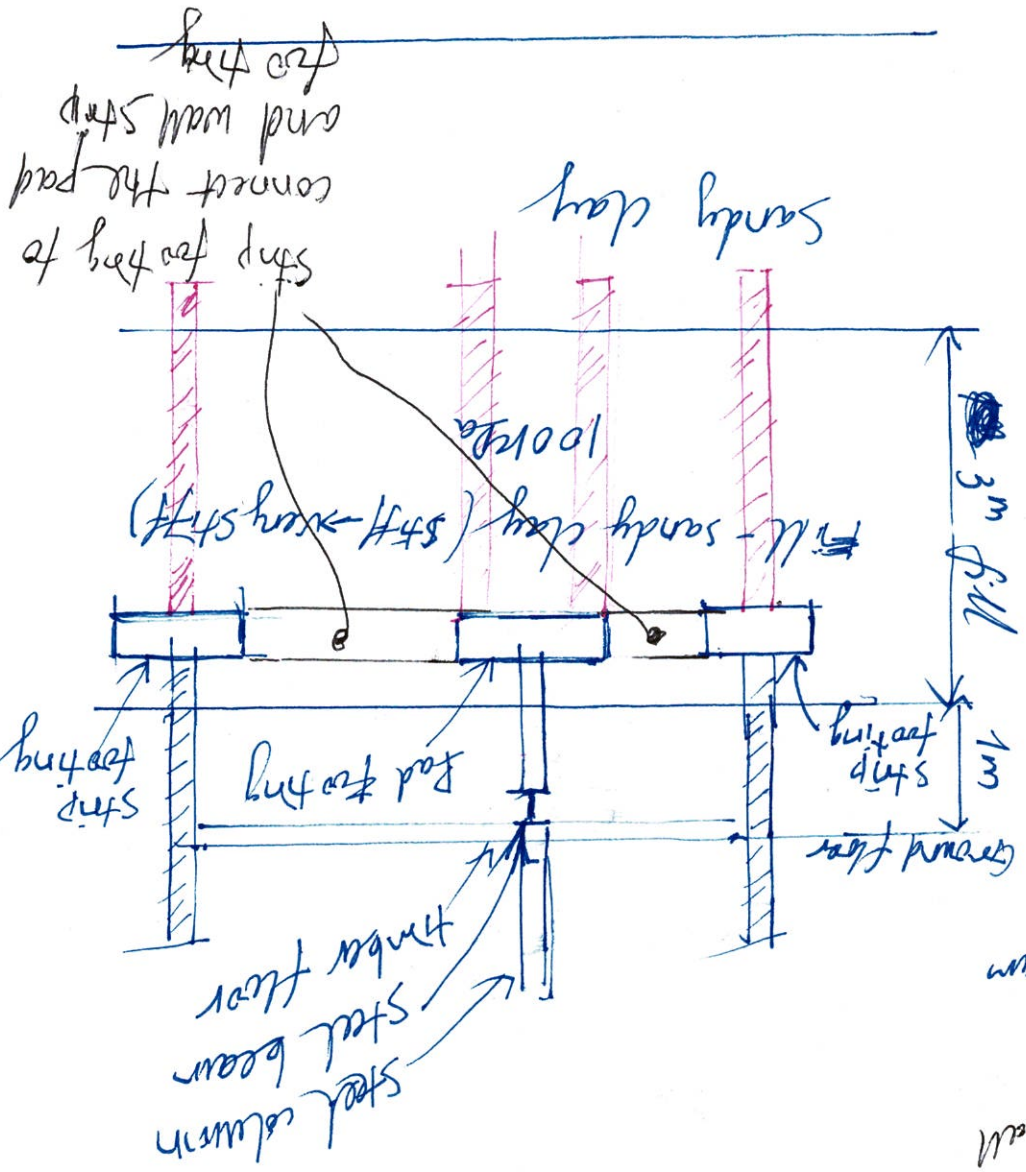 steel column
steel beam
timber floor
Ground floor
1m
strip
footing
Pad footing
strip
footing
3m fill
Fill - sandy clay (stiff → very stiff)
100kPa
sandy clay
strip footing to
connect the pad
and wall strip
footing